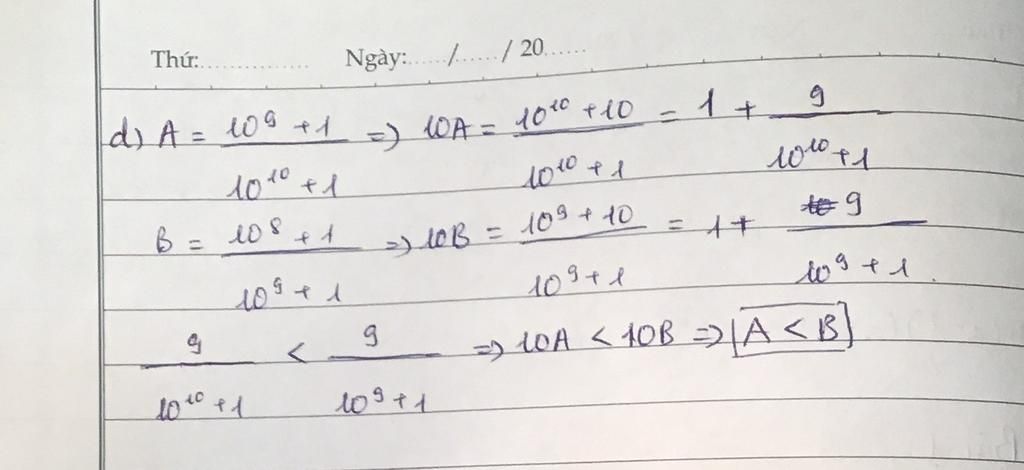 Thứ:............... Ngày:....../....../ 20......
d) A = \frac{10^9 + 1}{10^{10} + 1} => 10A = \frac{10^{10} + 10}{10^{10} + 1} = 1 + \frac{9}{10^{10} + 1}
B = \frac{10^8 + 1}{10^9 + 1} => 10B = \frac{10^9 + 10}{10^9 + 1} = 1 + \frac{9}{10^9 + 1}.
\frac{9}{10^{10} + 1} < \frac{9}{10^9 + 1} => 10A < 10B => A < B